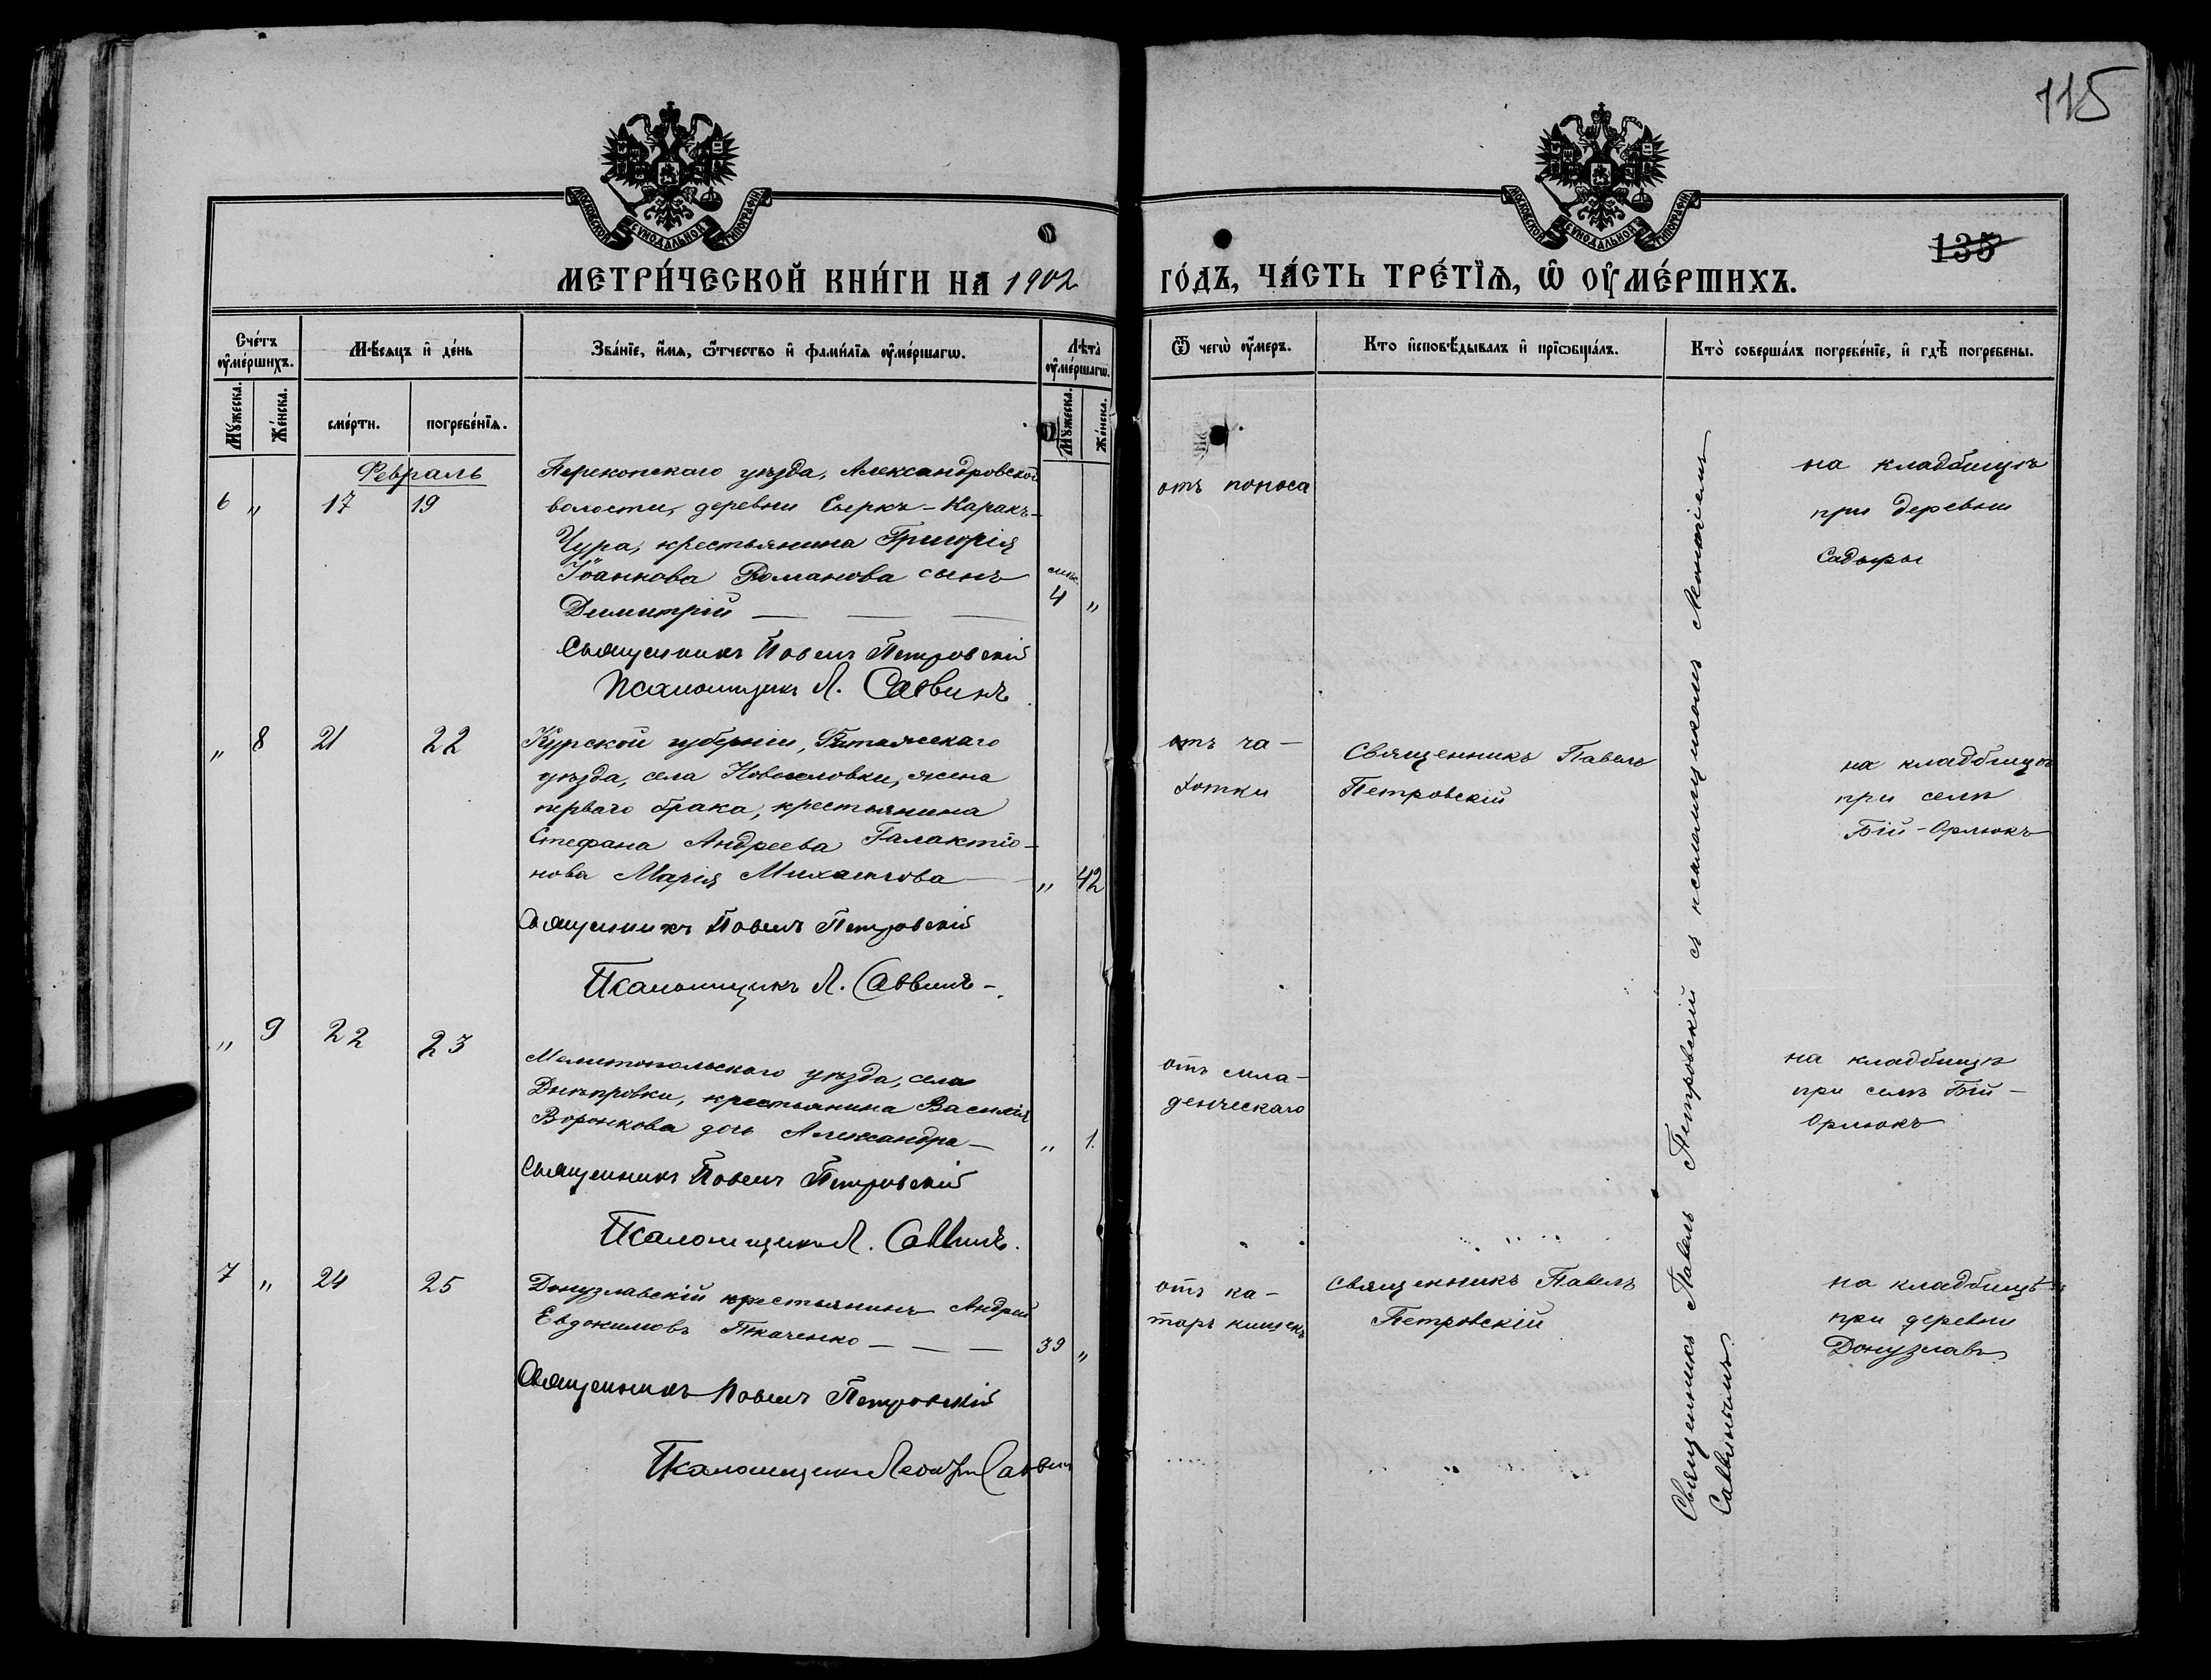 115
МОСКОВСКОЙ СѴНОДАЛЬНОЙ ТИПОГРАФІИ
МОСКОВСКОЙ СѴНОДАЛЬНОЙ ТИПОГРАФІИ
135
МЕТРИ́ЧЕСКОЙ КНИ́ГИ НА 1902 ГО́ДЪ, ЧА́СТЬ ТРЕ́ТЇѦ, Ѡ҆ ОУ҆МЕ́РШИХЪ.
Сче́тъ оу҆ме́ршихъ.
Мꙋ́жеска.
Же́нска.
Мѣ́сяцъ и҆ де́нь
сме́рти.
погребе́нїѧ.
Зва́нїе, и҆́мѧ, ѻ҆́тчество и҆ фами́лїѧ оу҆ме́ршагѡ.
Лѣ́та оу҆ме́ршагѡ.
Мꙋ́жеска.
Же́нска.
Ѿ чегѡ̀ оу҆́меръ.
Кто и҆сповѣ́дывалъ и҆ прїѡбща́лъ.
Кто̀ соверша́лъ погребе́нїе, и҆ гдѣ̀ погребены.
Февраль
6 " 17 19
Перекопскаго уѣзда, Александровской
волости, деревни Сыркъ-Каракъ-
Чура, крестьянина Григорія
Іоаннова Романова сынъ
Димитрій — — —
мѣс.
4 "
Священникъ Павелъ Петровскій
Псаломщикъ Л. Саввинъ
отъ поноса
на кладбищѣ
при деревни
Садыры
" 8 21 22
Курской губерніи,
уѣзда, села Новоселовки, жена
перваго брака, крестьянина
Стефана Андреева Галактіо-
нова Марія Михаилова — " 42
Священникъ Павелъ Петровскій
Псаломщикъ Л. Саввинъ
отъ ча-
хотки
Священникъ Павелъ
Петровскій
на кладбищѣ
при селѣ
Бій-Орлюкъ
" 9 22 23
Мелитопольскаго уѣзда, села
Днѣпровки, крестьянина Василія
Воронкова дочь Александра — " 1.
Священникъ Павелъ Петровскій
Псаломщикъ Л. Саввинъ.
отъ мла-
денческаго
на кладбищѣ
при селѣ Бій-
Орлюкъ
7 " 24 25
Донузлавскій крестьянинъ Андрей
Евдокимовъ Ткаченко — — — 39 "
Священникъ Павелъ Петровскій
Псаломщикъ Леонтій Саввинъ
отъ ка-
таръ кишекъ
Священникъ Павелъ
Петровскій
на кладбищѣ
при деревни
Донузлавъ
Священникъ Павелъ Петровскій съ псаломщикомъ Леонтіемъ
Саввинымъ.